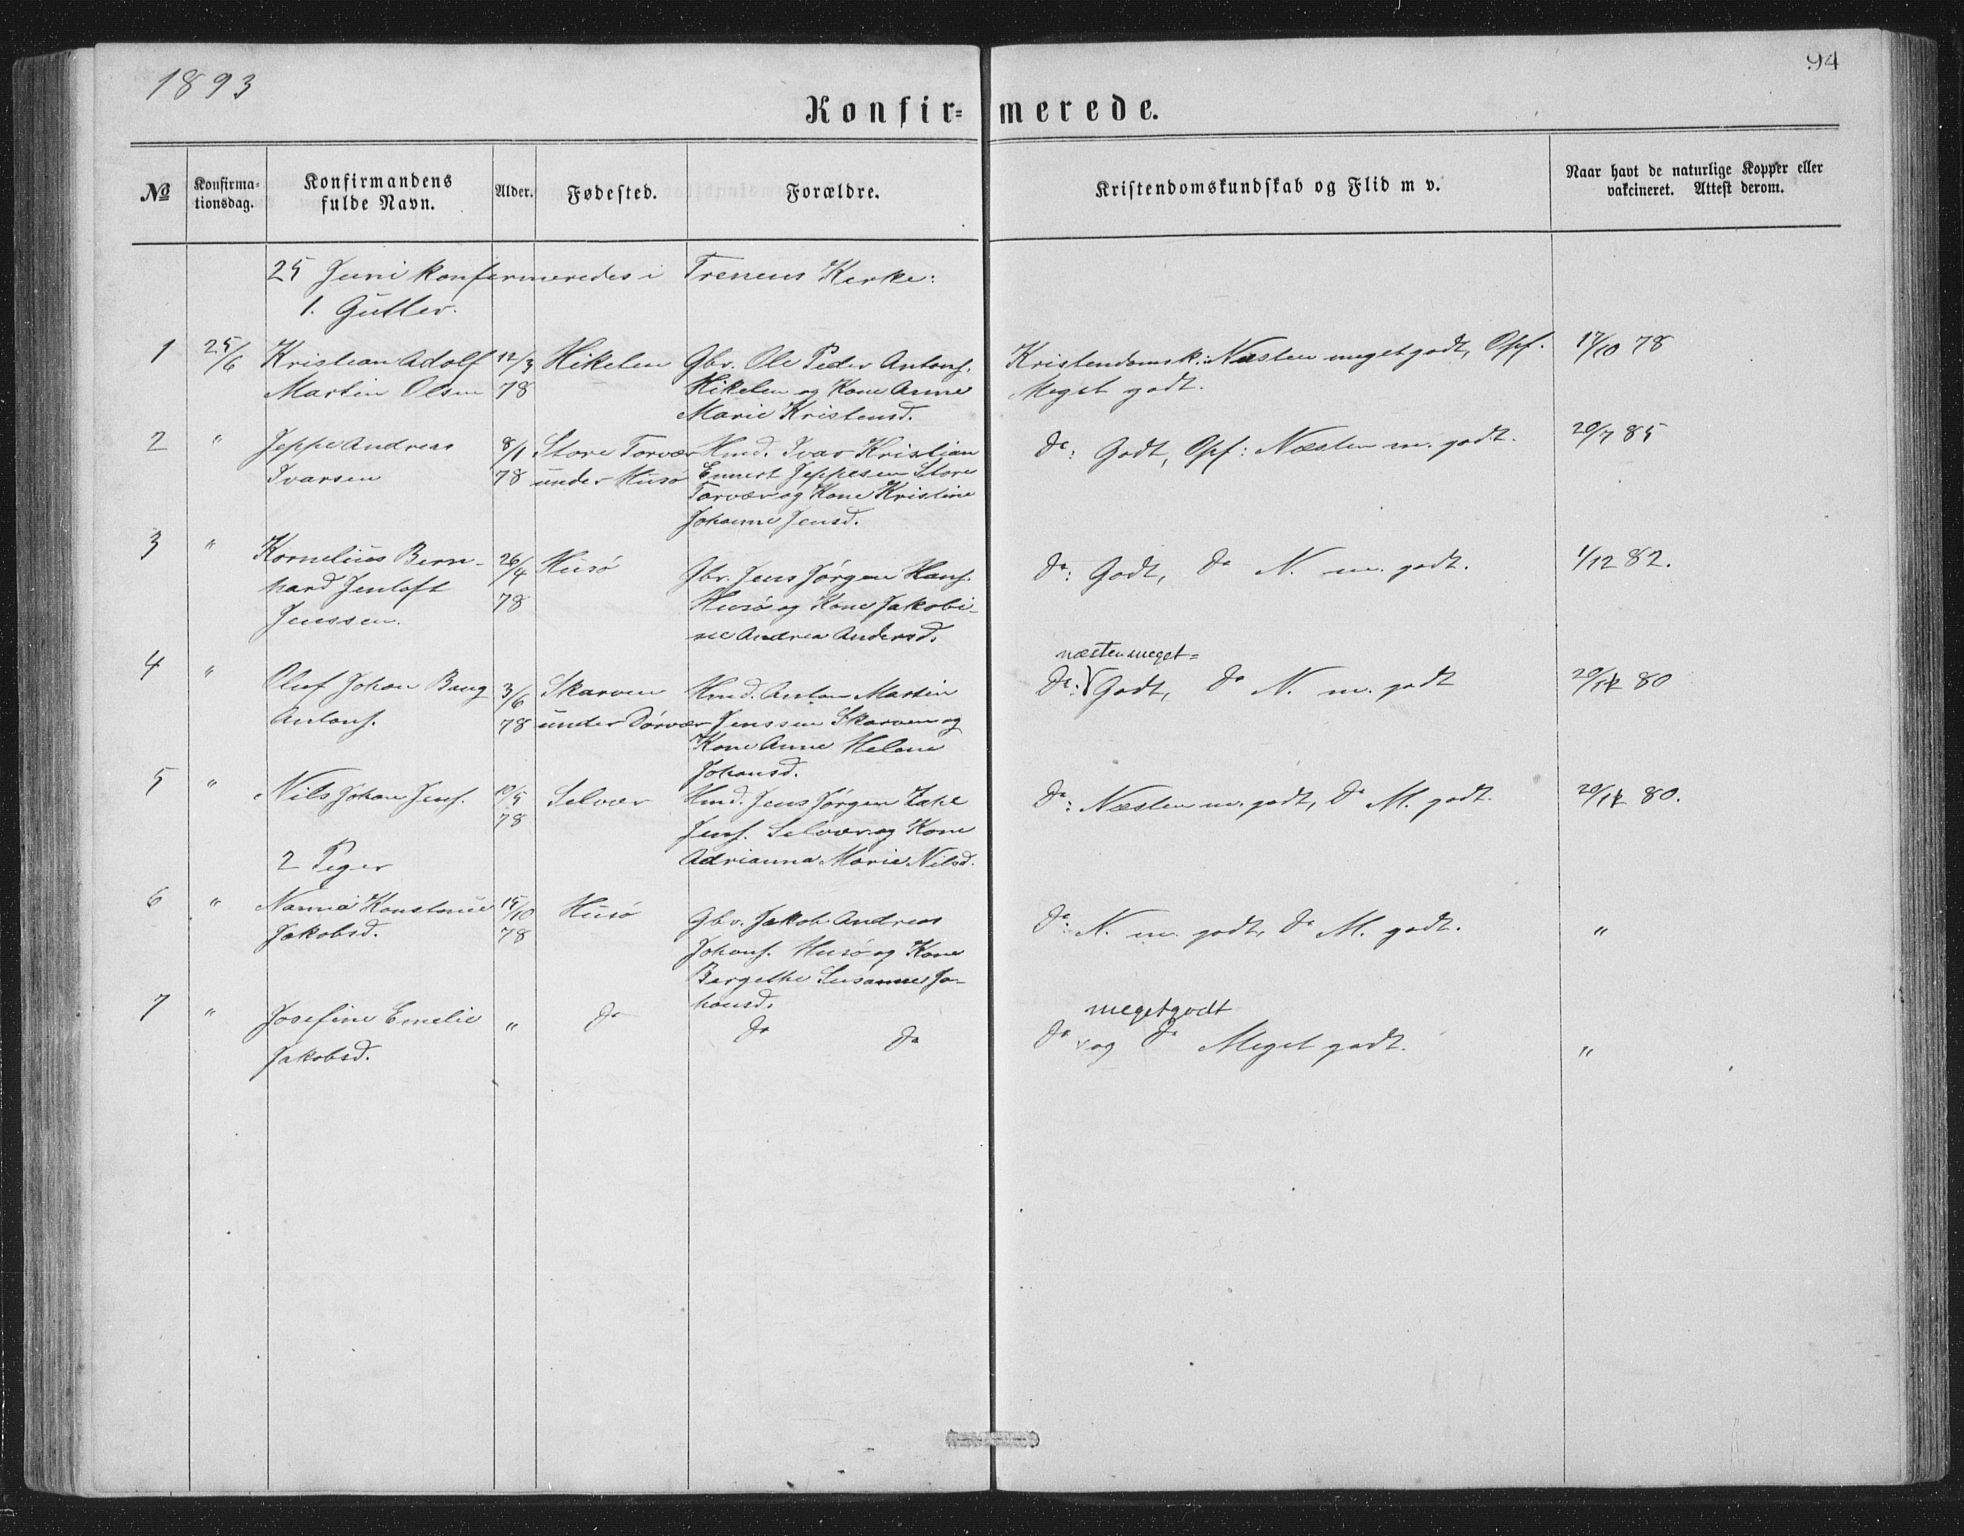 1893
94
Konfir= merede.
№
Konfirma-
tionsdag.
Konfirmandens
fulde Navn.
Alder.
Fødested.
Forældre.
Kristendomskundskab og Flid m v.
Naar havt de naturlige Kopper eller
vakcineret. Attest derom.
25 Juni konfirmeredes i Trenens Kirke:
1. Gutter.
1 25/6 Kristian Adolf 12/3 Hikelen Gbr. Ole Peder Antons. Kristendomsk: Næsten meget godt, Opf. 17/10 78
Martin Olsen 78 Hikelen og Kone Anne Meget godt.
Marie Kristensd.
2 " Jeppe Andreas 8/1 Store Torvær Hmd. Ivar Kristian Do: Godt, Opf: Næsten m. godt. 20/7 85
Ivarsen 78 under Husø Ennert Jeppesen Store
Torvær og Kone Kristine
Johanne Jensd.
3 " Kornelius Bern- 26/4 Husø Gbr. Jens Jørgen Hans. Do: Godt, Do N. m. godt. 1/12 82.
hard Jenloft 78 Husø og Kone Jakobi-
Jenssen. ne Andrea Andersd.
næsten meget=
4 " Oluf Johan Bang 3/6 Skarven Hmd. Anton Martin Do: Godt, Do N. m. godt 20/12 80
Antons. 78 under Dørvær Jenssen Skarven og
Kone Anne Helene
Johansd.
5 " Nils Johan Jens. 10/5 Selvær Hmd. Jens Jørgen Zahl Do: Næsten m. godt, Do M. godt. 20/12 80.
78 Jens. Selvær og Kone
2 Piger Adrianna Marie Nilsd.
6 " Nanna Konstance 15/10 Husø Gbr. Jakob Andreas Do: N. m. godt, Do M. godt. "
Jakobsd. 78 Johans. Husø og Kone
Bergithe Susanne Jo-
hansd.
meget godt
7 " Josefine Emelie " Do Do Do Do og Do Meget godt. "
Jakobsd.